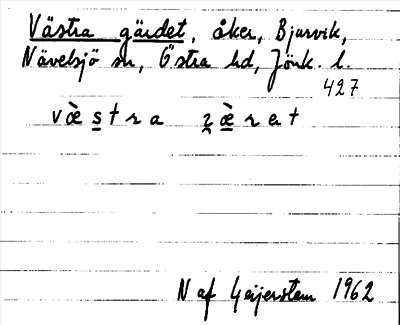 Västra gärdet, åker, Bjurvik,
Nävelsjö sn, Östra hd, Jönk. l.
427
væ̀stra ʒæ̀rat
N af Geijerstam 1962